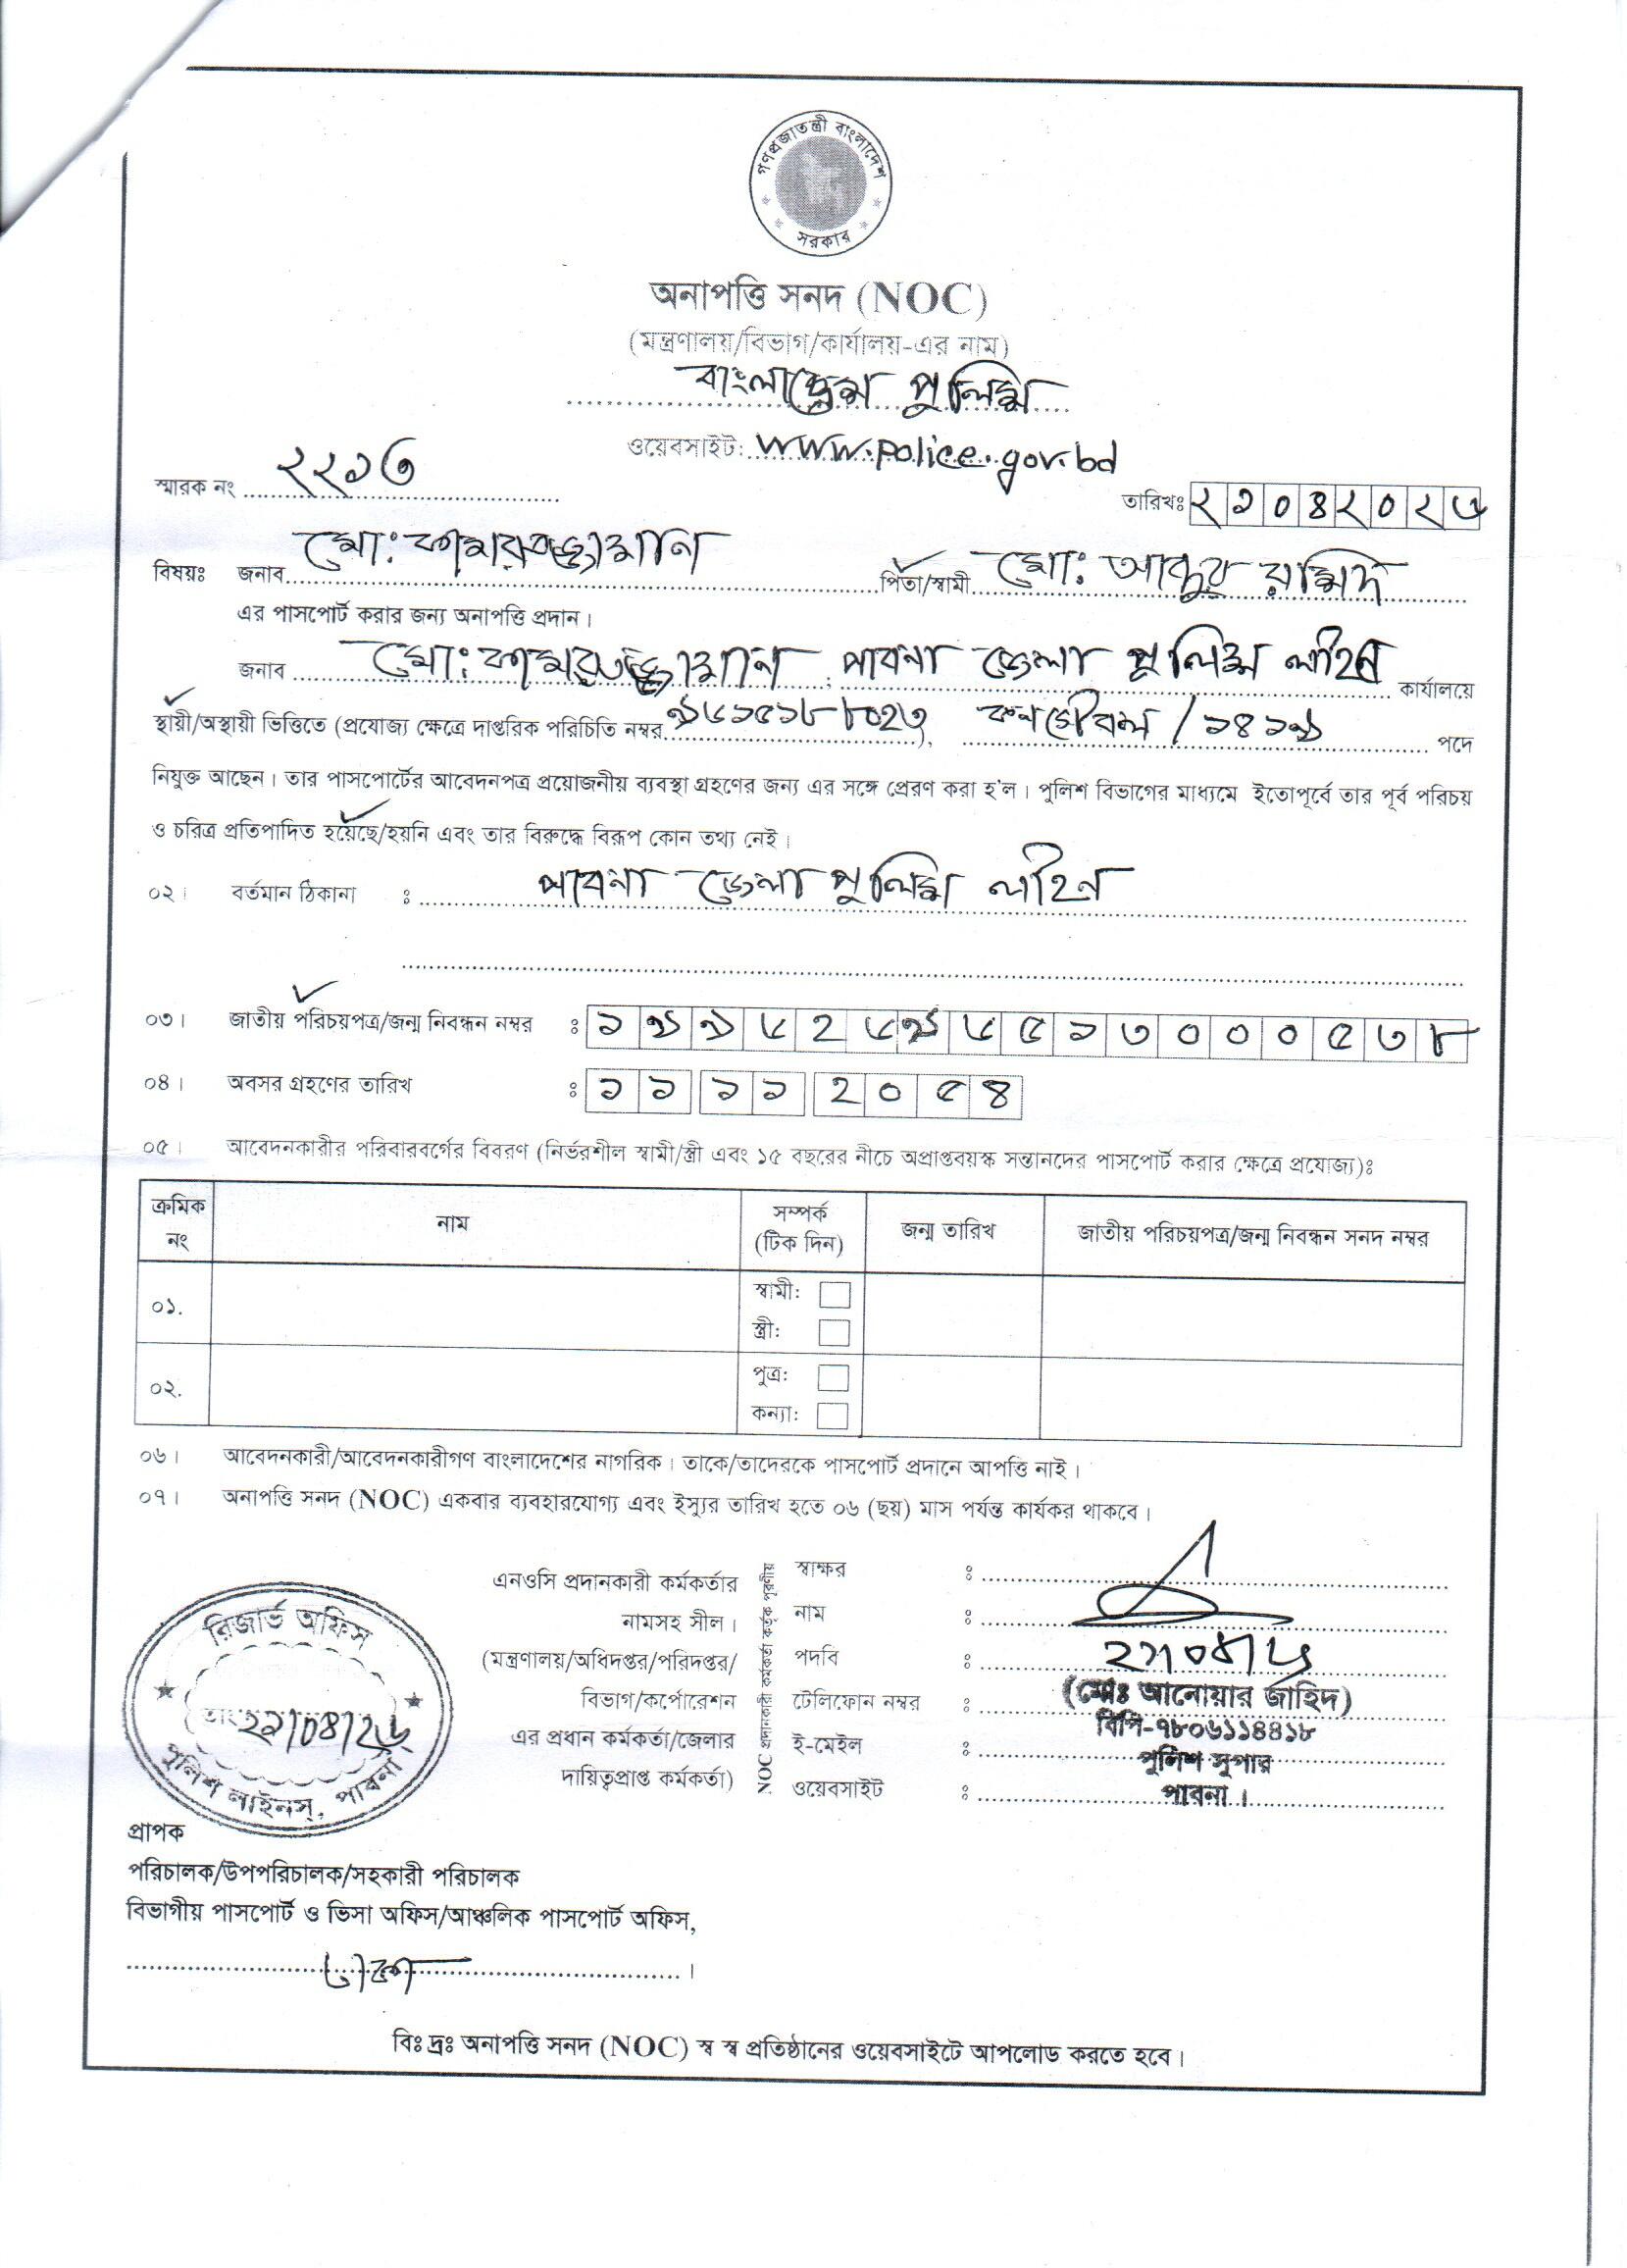 গণপ্রজাতন্ত্রী বাংলাদেশ
সরকার
অনাপত্তি সনদ (NOC)
(মন্ত্রণালয়/বিভাগ/কার্যালয়-এর নাম)
বাংলাদেশ পুলিশ
ওয়েবসাইট: www.police.gov.bd
স্মারক নং ২২১৩
তারিখঃ ২১০৪২০২৬
বিষয়ঃ জনাব মোঃ কামরুজ্জামান পিতা/স্বামী মোঃ আব্দুর রশিদ
এর পাসপোর্ট করার জন্য অনাপত্তি প্রদান।
জনাব মোঃ কামরুজ্জামান, পাবনা জেলা পুলিশ লাইন কার্যালয়ে
স্থায়ী/অস্থায়ী ভিত্তিতে (প্রযোজ্য ক্ষেত্রে দাপ্তরিক পরিচিতি নম্বর ৯৬১৫১৮৮০২৩), কনস্টেবল / ১৪১৯ পদে
নিযুক্ত আছেন। তার পাসপোর্টের আবেদনপত্র প্রয়োজনীয় ব্যবস্থা গ্রহণের জন্য এর সঙ্গে প্রেরণ করা হ'ল। পুলিশ বিভাগের মাধ্যমে ইতোপূর্বে তার পূর্ব পরিচয়
ও চরিত্র প্রতিপাদিত হয়েছে/হয়নি এবং তার বিরুদ্ধে বিরূপ কোন তথ্য নেই।
০২। বর্তমান ঠিকানা : পাবনা জেলা পুলিশ লাইন
০৩। জাতীয় পরিচয়পত্র/জন্ম নিবন্ধন নম্বর : ১৯৯৬২৬৯৬৫১৩০০০৫৩৮
০৪। অবসর গ্রহণের তারিখ : ১১ ১১ ২০৫৪
০৫। আবেদনকারীর পরিবারবর্গের বিবরণ (নির্ভরশীল স্বামী/স্ত্রী এবং ১৫ বছরের নীচে অপ্রাপ্তবয়স্ক সন্তানদের পাসপোর্ট করার ক্ষেত্রে প্রযোজ্য)ঃ
ক্রমিক নং নাম সম্পর্ক (টিক দিন) জন্ম তারিখ জাতীয় পরিচয়পত্র/জন্ম নিবন্ধন সনদ নম্বর
০১. স্বামী:
স্ত্রী:
০২. পুত্র:
কন্যা:
০৬। আবেদনকারী/আবেদনকারীগণ বাংলাদেশের নাগরিক। তাকে/তাদেরকে পাসপোর্ট প্রদানে আপত্তি নাই।
০৭। অনাপত্তি সনদ (NOC) একবার ব্যবহারযোগ্য এবং ইস্যুর তারিখ হতে ০৬ (ছয়) মাস পর্যন্ত কার্যকর থাকবে।
এনওসি প্রদানকারী কর্মকর্তার
নামসহ সীল।
(মন্ত্রণালয়/অধিদপ্তর/পরিদপ্তর/
বিভাগ/কর্পোরেশন
এর প্রধান কর্মকর্তা/জেলার
দায়িত্বপ্রাপ্ত কর্মকর্তা)
NOC প্রদানকারী কর্মকর্তা কর্তৃক পূরণীয়
স্বাক্ষর :
নাম :
পদবি : ২১০৪২৬
টেলিফোন নম্বর : (মোঃ আনোয়ার জাহিদ)
বিপি-৭৮০৬১১৪৪১৮
ই-মেইল : পুলিশ সুপার
ওয়েবসাইট : পাবনা।
রিজার্ভ অফিস
তাং ২১/০৪/২৬
পুলিশ লাইনস্, পাবনা
প্রাপক
পরিচালক/উপপরিচালক/সহকারী পরিচালক
বিভাগীয় পাসপোর্ট ও ভিসা অফিস/আঞ্চলিক পাসপোর্ট অফিস,
ঢাকা।
বিঃ দ্রঃ অনাপত্তি সনদ (NOC) স্ব স্ব প্রতিষ্ঠানের ওয়েবসাইটে আপলোড করতে হবে।